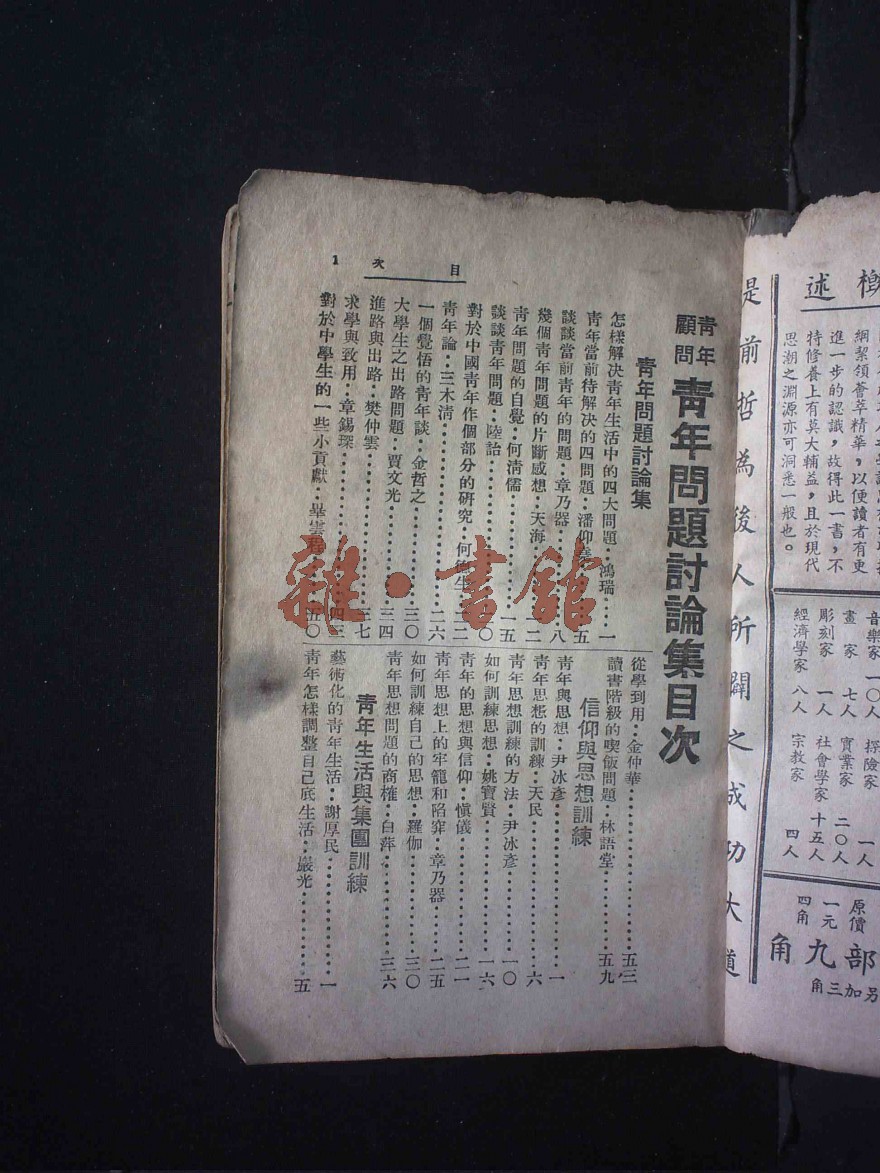 目 次 1
青年顧問 青年問題討論集目次
青年問題討論集
怎樣解決青年生活中的四大問題‥鴻瑞‥一
青年當前待解決的四問題‥潘仰堯‥五
談談當前青年的問題‥章乃器‥八
幾個青年問題的片斷感想‥天海‥一二
青年問題的自覺‥何清儒‥一五
談談青年問題‥陸詒
對於中國青年作個部分的研究‥何
青年論‥三木清‥二六
一個覺悟的青年談‥金哲之‥三〇
大學生之出路問題‥賈文光‥三四
進路與出路‥樊仲雲‥三七
求學與致用‥章錫琛‥四三
對於中學生的一些小貢獻‥畢雲程‥五〇
從學到用‥金仲華‥五三
讀書階級的喫飯問題‥林語堂‥五九
信仰與思想訓練
青年與思想‥尹冰彥‥一
青年思想的訓練‥天民‥六
青年思想訓練的方法‥尹冰彥‥一〇
如何訓練思想‥姚寶賢‥一六
青年的思想與信仰‥愼儀‥二一
青年思想上的牢籠和陷穽‥章乃器‥二五
如何訓練自己的思想‥羅伽‥三〇
青年思想問題的商榷‥白萍‥三六
青年生活與集團訓練
藝術化的青年生活‥謝厚民‥一
青年怎樣調整自己底生活‥嚴光‥五
雜·書館
是前哲為後人所闢之成功大道
概述
綱絜領薈萃精華,以便讀者有更
進一步的認識,故得此一書,不
特修養上有莫大輔益,且於現代
思潮之淵源亦可洞悉一般也。
音樂家 一〇人 探險家 一人
畫家 七人 實業家 二〇人
彫刻家 一人 社會學家 十五人
經濟學家 八人 宗教家 四人
原價
一元
四角
部九角
另加三角